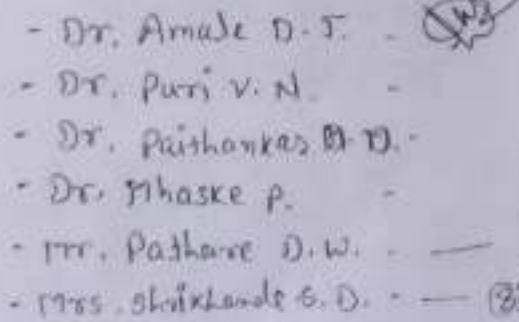 - Dr. Amale D. J. -
- Dr. Puri V. N. -
- Dr. Paithankar D. -
- Dr. Mhaske P. -
- Mr. Pathare D. W. - —
- Mrs. Shrikhande S. D. - —